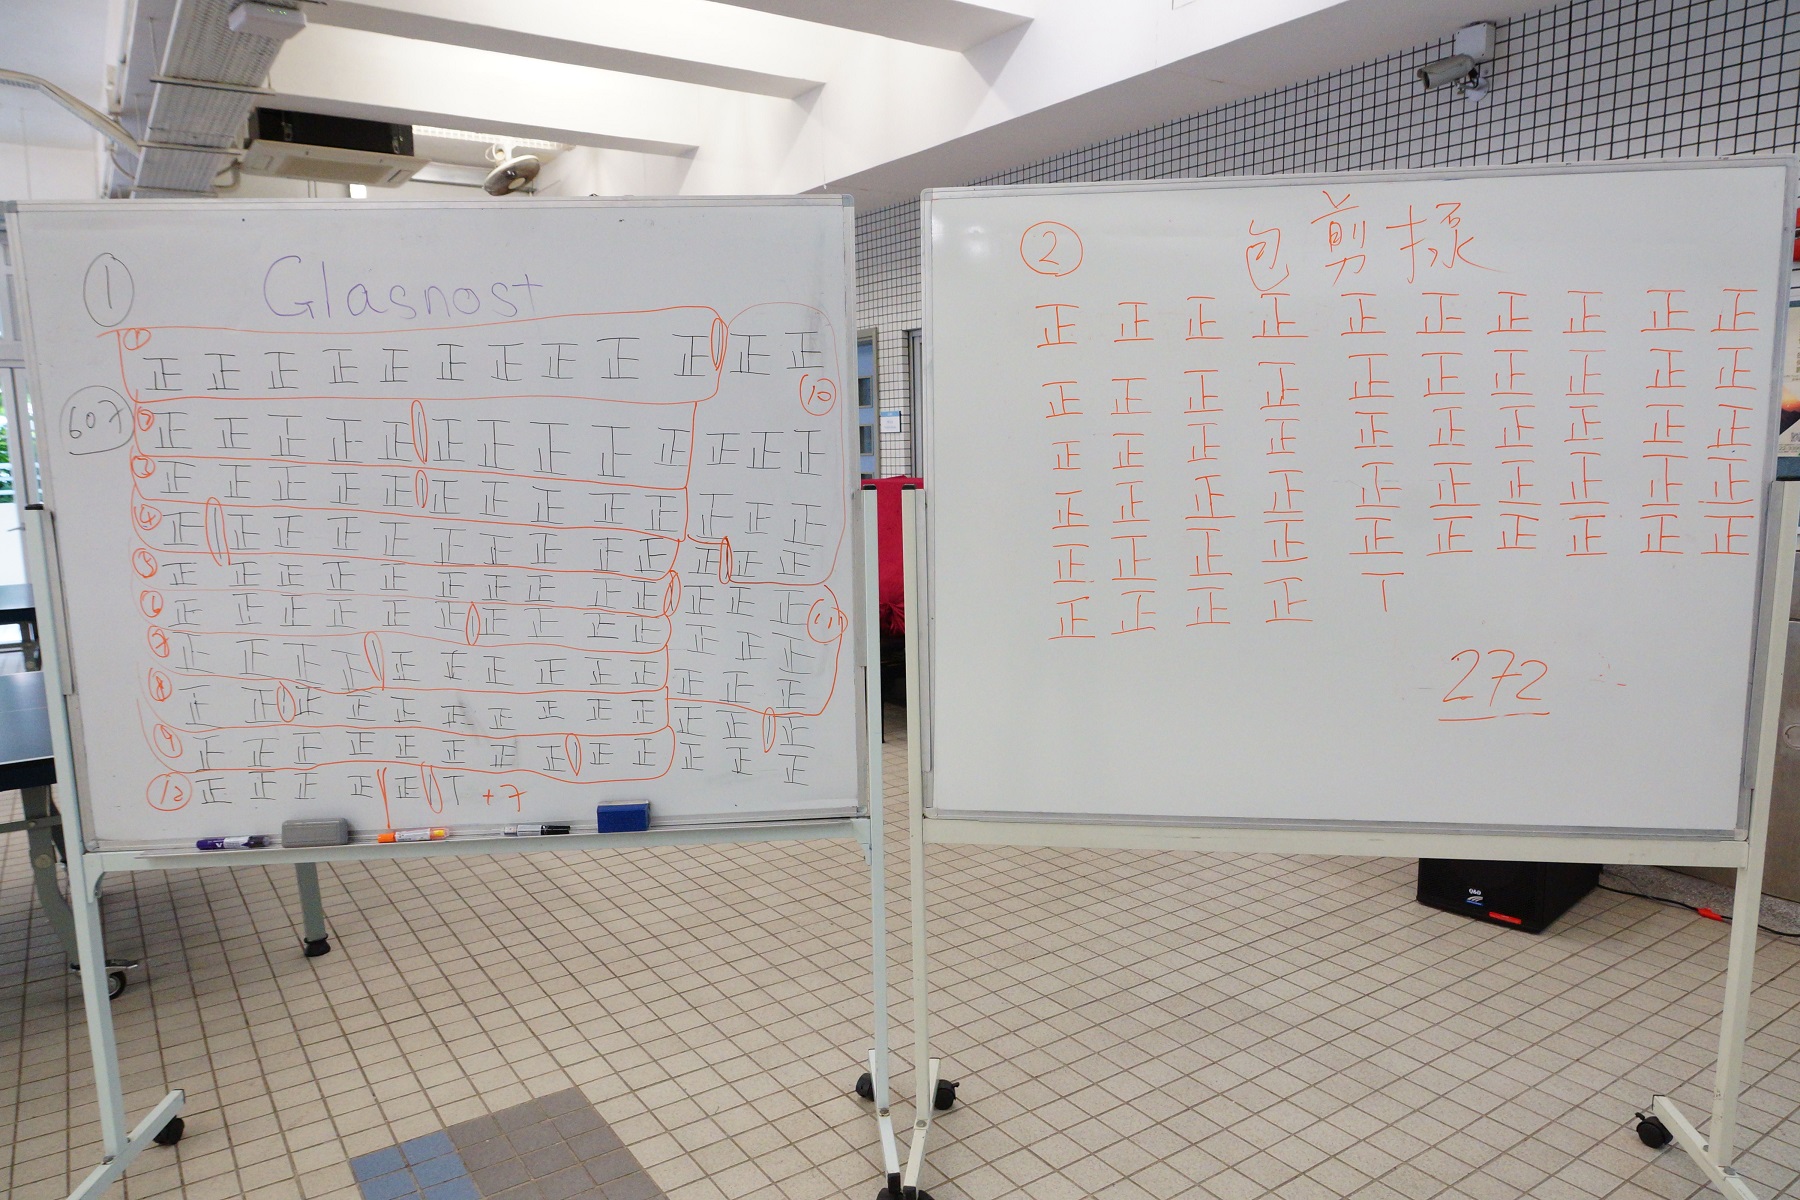 ① Glasnost
607
① 正 正 正 正 正 正 正 正 正 正 正 正
② 正 正 正 正 正 正 正 正 正 正 正 正 正
③ 正 正 正 正 正 正 正 正 正 正 正 正 正
④ 正 正 正 正 正 正 正 正 正 正 正 正 正
⑤ 正 正 正 正 正 正 正 正 正 正 正 正 正
⑥ 正 正 正 正 正 正 正 正 正 正 正 正 正
⑦ 正 正 正 正 正 正 正 正 正 正 正 正 正
⑧ 正 正 正 正 正 正 正 正 正 正 正 正
⑨ 正 正 正 正 正 正 正 正 正 正 正 正 正
⑩
⑪
⑫ 正 正 正 正 正 T +7
② 包剪揼
正 正 正 正 正 正 正 正 正 正
正 正 正 正 正 正 正 正 正 正
正 正 正 正 正 正 正 正 正 正
正 正 正 正 正 正 正 正 正 正
正 正 正 正 正 正 正 正 正 正
正 正 正 正 T
272